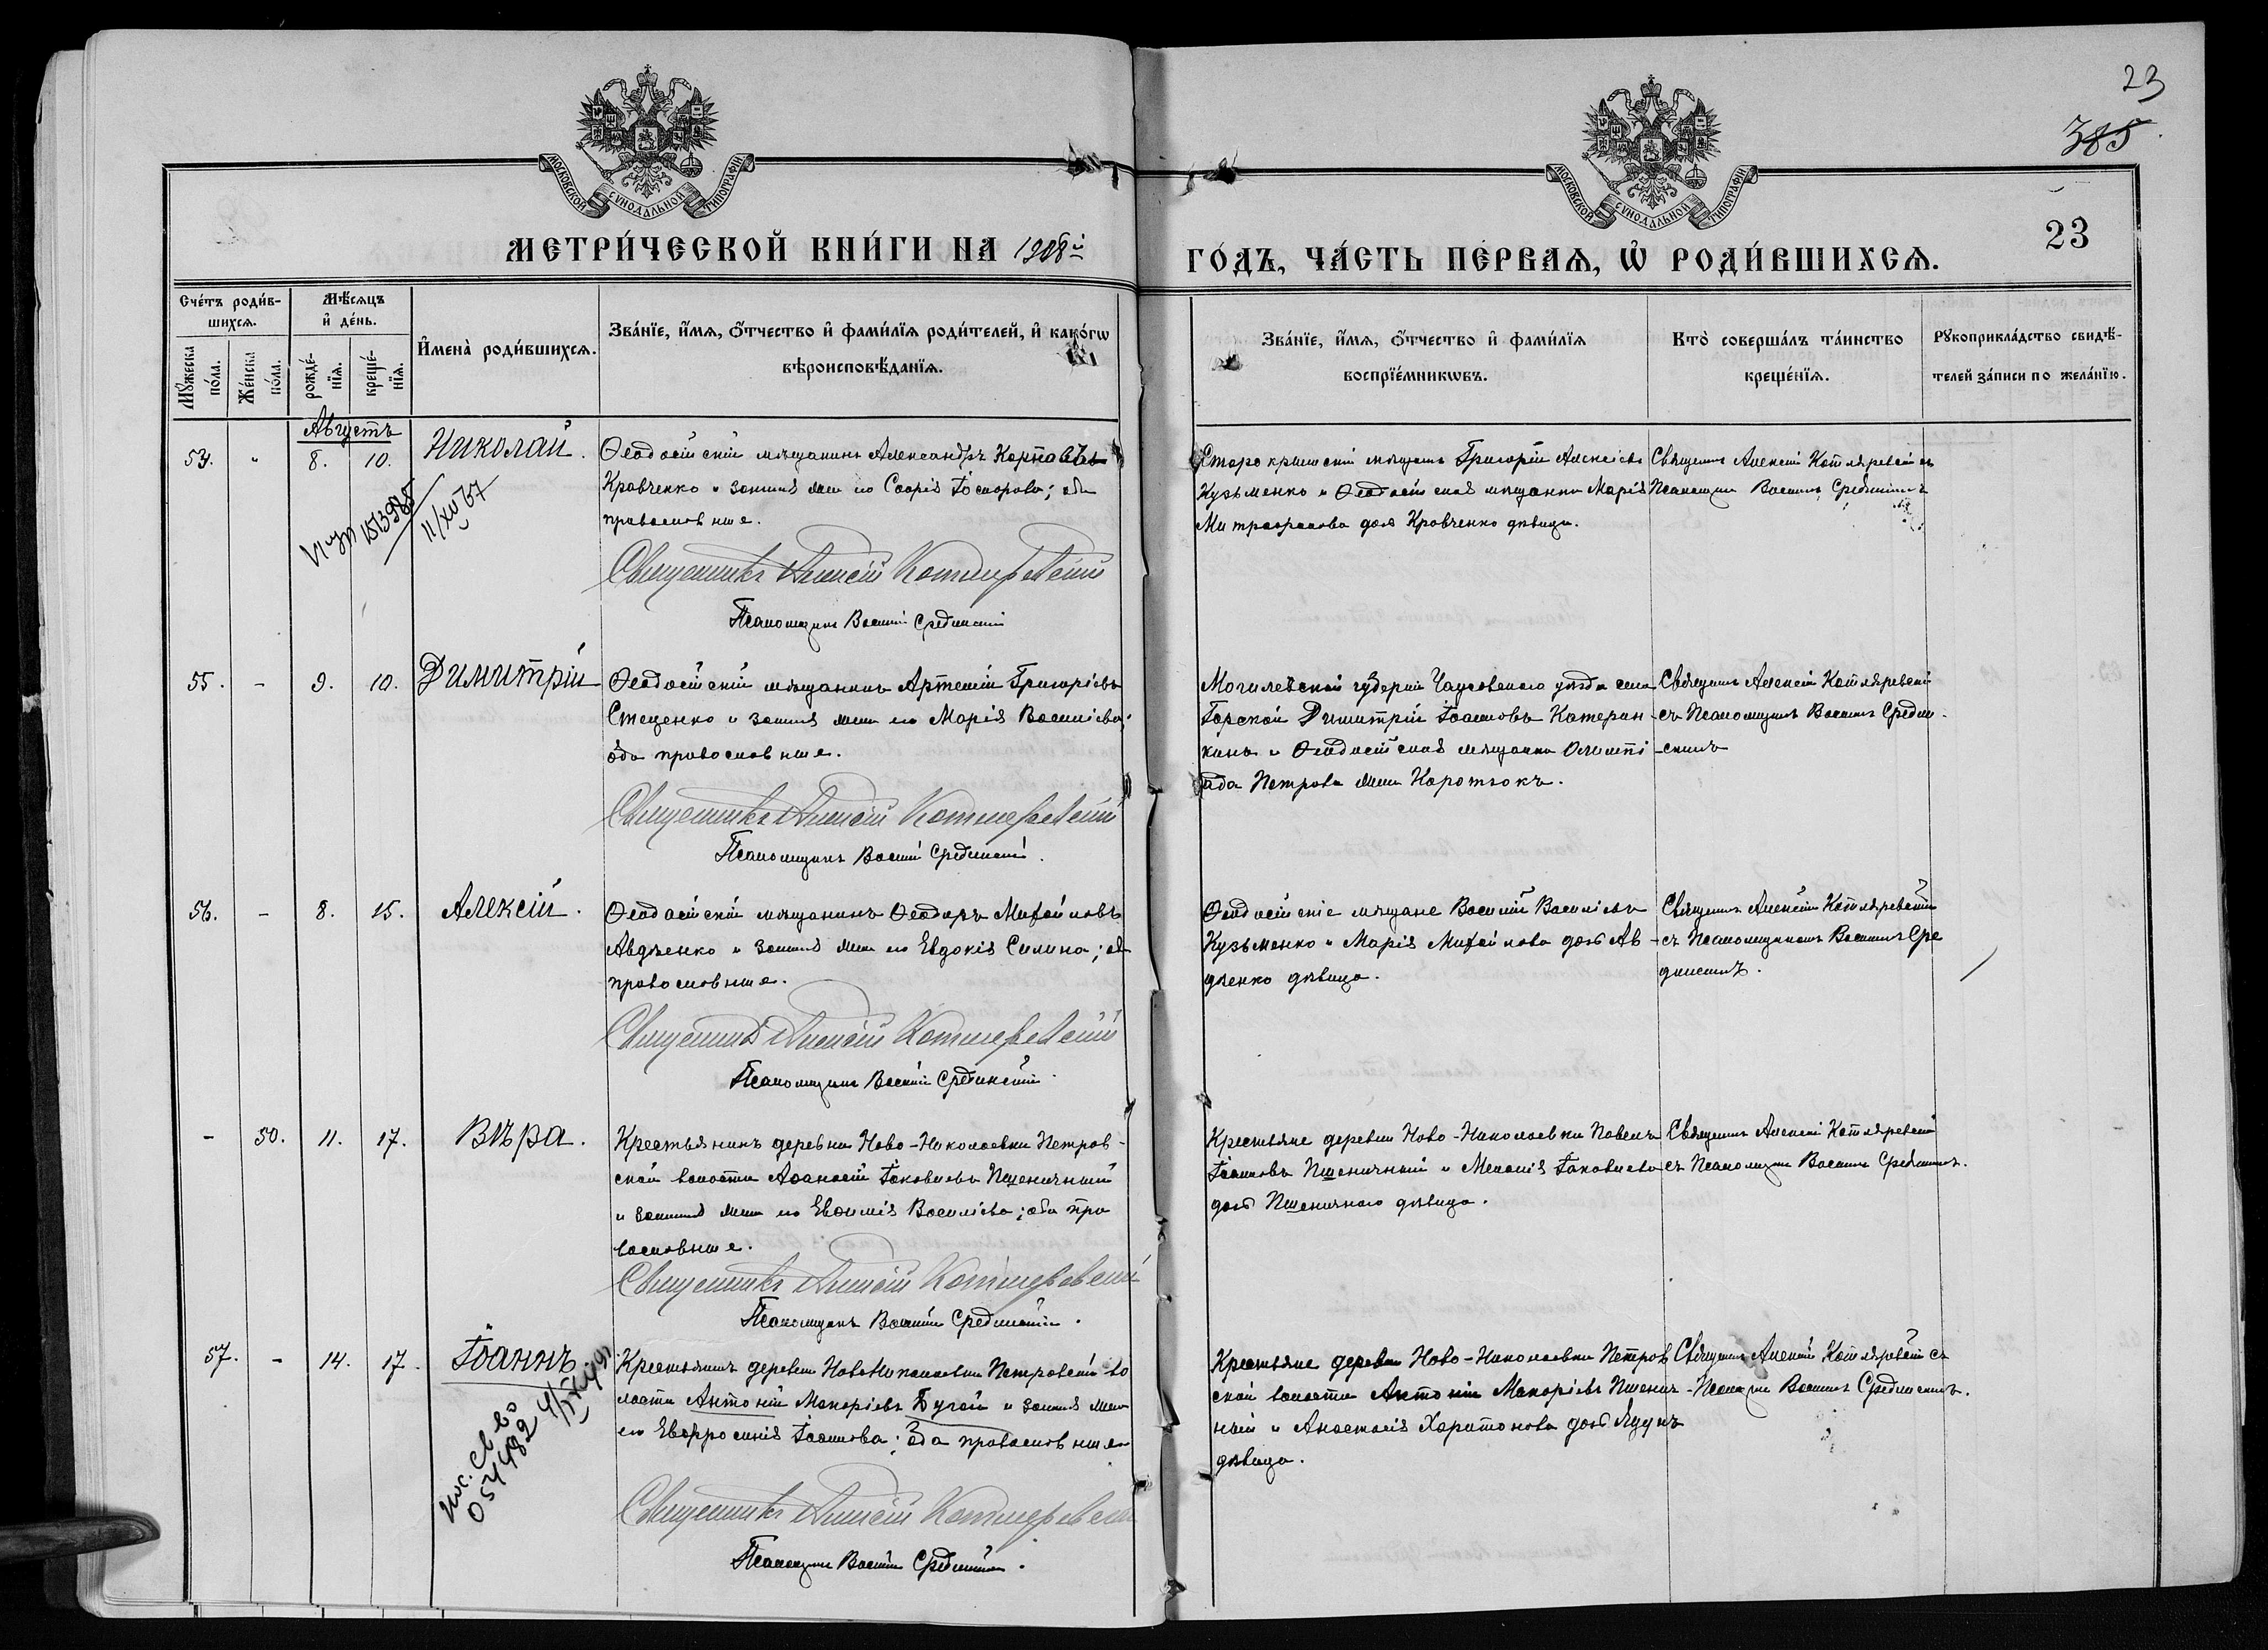 23
385
МОСКОВСКОЙ СѴНОДАЛЬНОЙ ТИПОГРАФІИ
МОСКОВСКОЙ СѴНОДАЛЬНОЙ ТИПОГРАФІИ
МЕТРИ́ЧЕСКОЙ КНИ́ГИ НА 1908й
ГО́ДЪ, ЧА́СТЬ ПЕ́РВАѦ, Ѽ РОДИ́ВШИХСѦ.
23
Сче́тъ роди́в-
шихсѧ.
Мѣ́сѧцъ
и҆ де́нь.
Мꙋ́жеска
по́ла.
Же́нска
по́ла.
рожде́-
нїѧ.
креще́-
нїѧ.
И҆мена̀ роди́вшихсѧ.
Зва́нїе, и҆́мѧ, ѻ҆́тчество и҆ фами́лїѧ роди́телей, и҆ како́гѡ
вѣроисповѣ́данїѧ.
Зва́нїе, и҆́мѧ, ѻ҆́тчество и҆ фами́лїѧ
воспрїе́мникѡвъ.
Кто̀ соверша́лъ та́инство
креще́нїѧ.
Рꙋкоприкла́дство свидѣ́-
телей за́писи по жела́нїю.
Августъ
54. " 8. 10. Николай.
Ѳеодосійскій мѣщанинъ Александръ Карповъ
Кравченко и законная жена его Софія Іосифова; оба
православные.
Священникъ Алексій Котляревскій
Псаломщикъ Василій Срединскій
Старокрымскій мѣщанинъ Григорій Алексіевъ
Кузьменко и Ѳеодосійская мѣщанка Марія
Митрофанова дочь Кравченко дѣвица.
Священникъ Алексій Котляревскій съ
Псаломщикомъ Василіемъ Срединскимъ
11/XII 67
55. - 9. 10. Димитрій
Ѳеодосійскій мѣщанинъ Артемій Григоріевъ
Стеценко и законная жена его Марія Василіева;
оба православные.
Священникъ Алексій Котляревскій
Псаломщикъ Василій Срединскій.
Могилевской губерніи Чаусовскаго уѣзда села
Горской Димитрій Іоанновъ Катерин-
кинъ и Ѳеодосійская мѣщанка Олимпі-
ада Петрова жена Коротюкъ.
Священникъ Алексій Котляревскій
съ Псаломщикомъ Василіемъ Средин-
скимъ
56. - 8. 15. Алексій.
Ѳеодосійскій мѣщанинъ Ѳеодоръ Михайловъ
Авдѣенко и законная жена его Евдокія Силина; оба
православные.
Священникъ Алексій Котляревскій
Псаломщикъ Василій Срединскій.
Ѳеодосійскіе мѣщане Василій Василіевъ
Кузьменко и Марія Михайлова дочь Ав-
дѣенко дѣвица.
Священникъ Алексій Котляревскій
съ Псаломщикомъ Василіемъ Сре
динскимъ.
- 50. 11. 17. Вѣра.
Крестьянинъ деревни Ново-Николаевки Петров-
ской волости Аѳанасій Іаковлевъ Пшеничный
и законная жена его Евѳимія Василіева; оба пра
вославные.
Священникъ Алексій Котляревскій
Псаломщикъ Василій Срединскій.
Крестьяне деревни Ново-Николаевки Павелъ
Іоанновъ Пшеничный и Меланія Іаковлева
дочь Пшеничнаго дѣвица.
Священникъ Алексій Котляревскій
съ Псаломщикомъ Василіемъ Срединскимъ.
57. - 14. 17. Іоаннъ.
Крестьянинъ деревни Ново Николаевки Петровской во
лости Антоній Макаріевъ Бугай и законная жена
его Евфросинія Іоаннова; оба православные
Священникъ Алексій Котляревскій
Псаломщикъ Василій Срединскій.
Крестьяне деревни Ново-Николаевки Петров
ской волости Антоній Макаріевъ Пшенич-
ный и Анастасія Харитонова дочь Ядукъ
дѣвица.
Священникъ Алексій Котляревскій съ
Псаломщикомъ Василіемъ Срединскимъ.